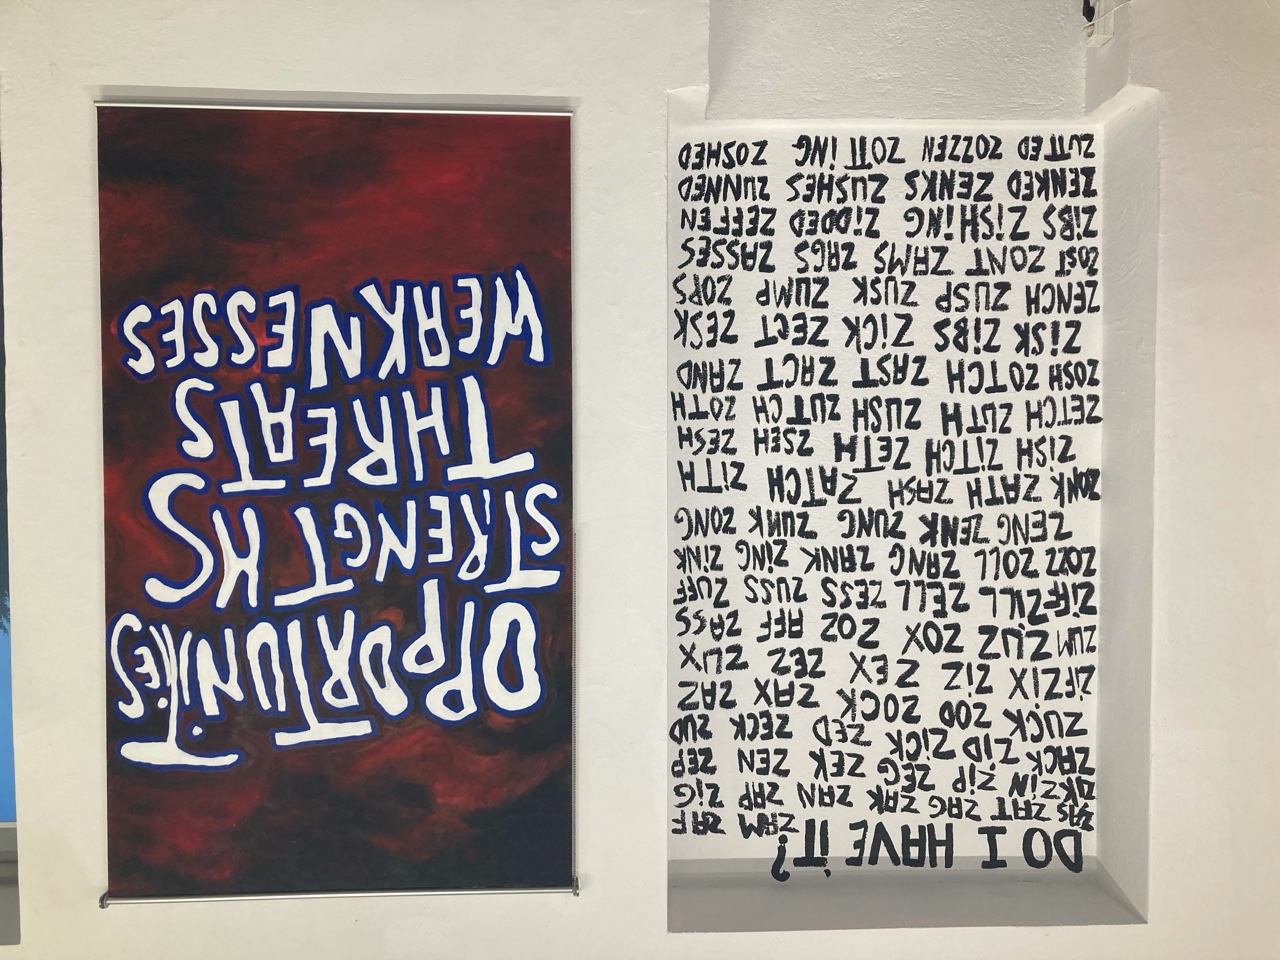 DO I HAVE iT?
ZAM ZAF
ZAS ZAT ZAG ZAK ZAN ZAP ZiG
ZiN ZiP ZEG ZEK ZEN ZEP
ZACK ZiD ZiCK ZED ZECK ZUD
ZUCK ZOD ZOCK ZAX ZAZ
ZiF ZiX ZiZ ZEX ZEZ ZUX
ZUM ZUZ ZOX ZOZ AFF ZASS
ZiFF ZiLL ZELL ZESS ZUSS ZUFF
ZOZZ ZOLL ZANG ZANK ZiNG ZiNK
ZENG ZENK ZUNG ZUNK ZONG
ZONK ZATH ZASH ZATCH ZiTH
ZiSH ZiTCH ZETH ZSEH ZESH
ZETCH ZUTH ZUSH ZUTCH ZOTH
ZOSH ZOTCH ZAST ZACT ZAND
ZiSK ZiBS ZiCK ZECT ZESK
ZENCH ZUSP ZUSK ZUMP ZOPS
ZOST ZONT ZAMS ZAGS ZASSES
ZiBS ZiSHiNG ZiDDED ZEFFEN
ZENKED ZENKS ZUSHES ZUNNED
ZUTTED ZOZZEN ZOTTiNG ZOSHED
OPPORTUNiTiES
STRENGTHS
THREATS
WEAKNESSES